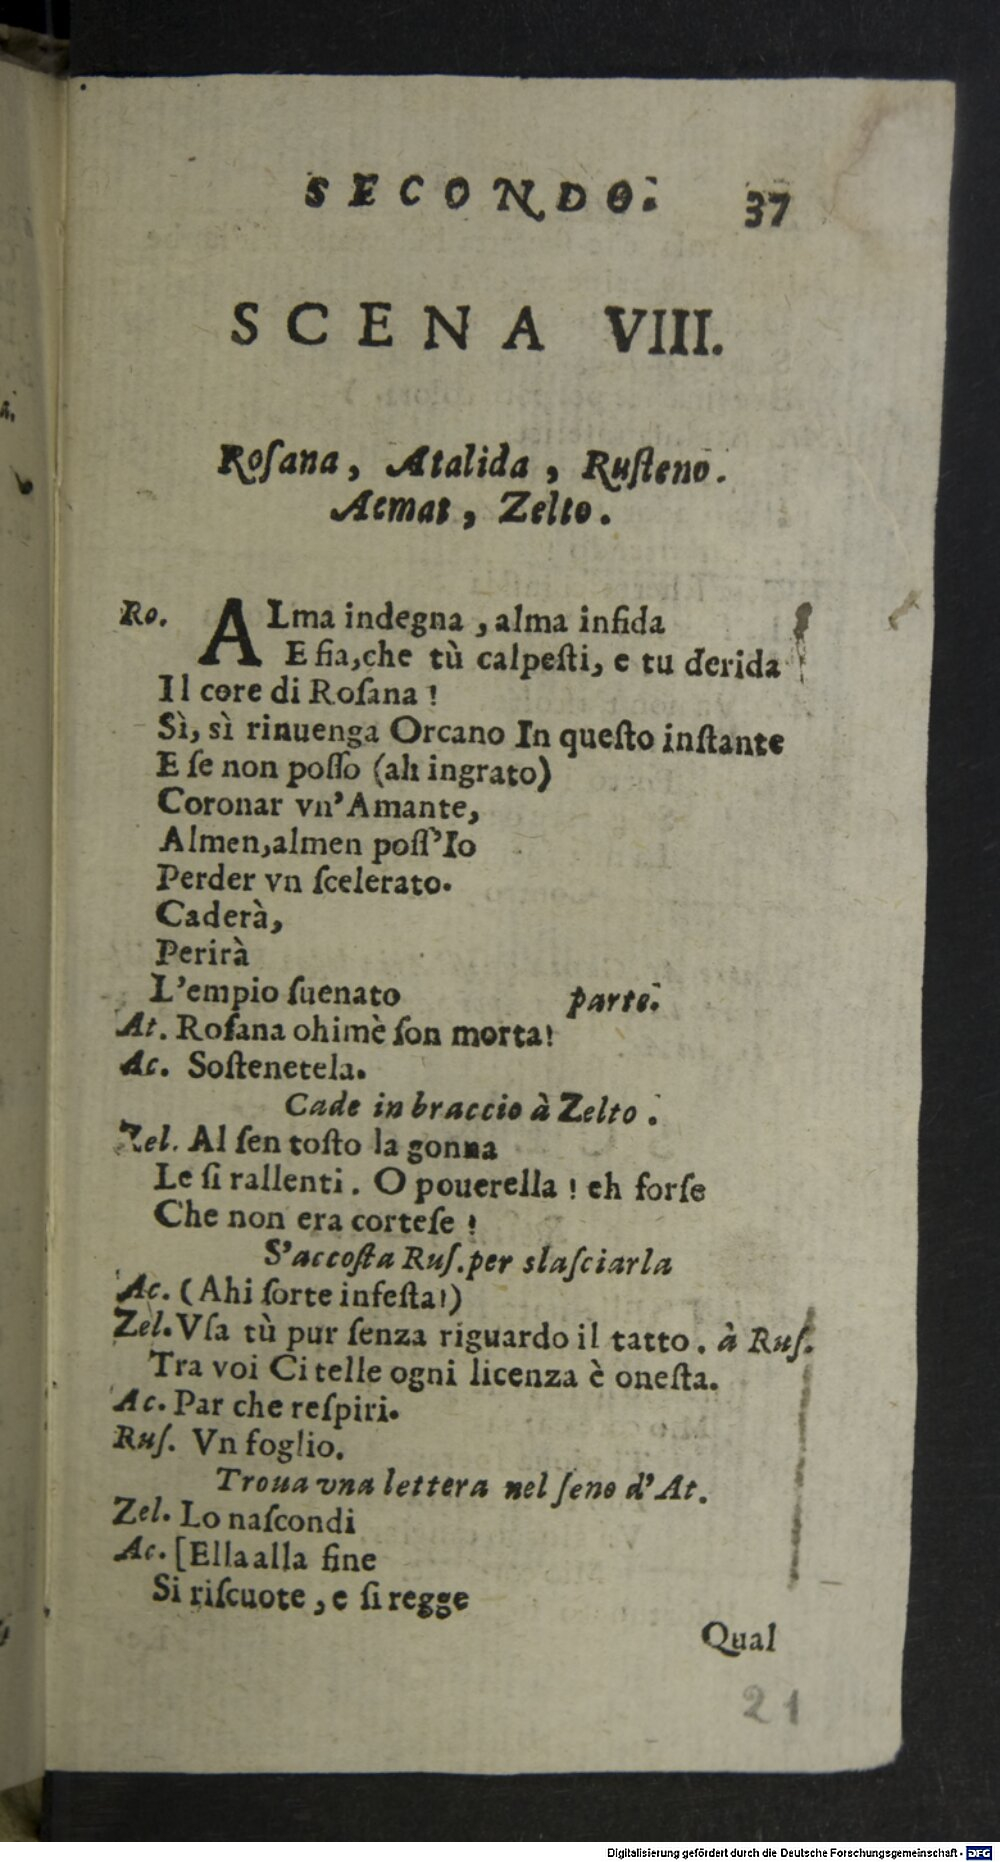 SECONDO. 37
SCENA VIII.
Roſana, Atalida, Ruſteno.
Acmat, Zelto.
Ro. ALma indegna, alma infida
E fia, che tù calpeſti, e tu derida
Il core di Roſana!
Sì, sì rinuenga Orcano In queſto inſtante
E ſe non poſſo (ah ingrato)
Coronar vn'Amante,
Almen, almen poſſ'Io
Perder vn ſcelerato.
Caderà,
Perirà
L'empio ſuenato parte.
At. Roſana ohimè ſon morta!
Ac. Soſtenetela.
Cade in braccio à Zelto.
Zel. Al ſen toſto la gonna
Le ſi rallenti. O pouerella! eh forſe
Che non era corteſe!
S'accoſta Ruſ. per slaſciarla
Ac. (Ahi ſorte infeſta!)
Zel. Vſa tù pur ſenza riguardo il tatto. à Ruſ.
Tra voi Citelle ogni licenza è oneſta.
Ac. Par che reſpiri.
Ruſ. Vn foglio.
Troua vna lettera nel ſeno d'At.
Zel. Lo naſcondi
Ac. [Ella alla fine
Si riſcuote, e ſi regge
Qual
21
Digitalisierung gefördert durch die Deutsche Forschungsgemeinschaft - DFG